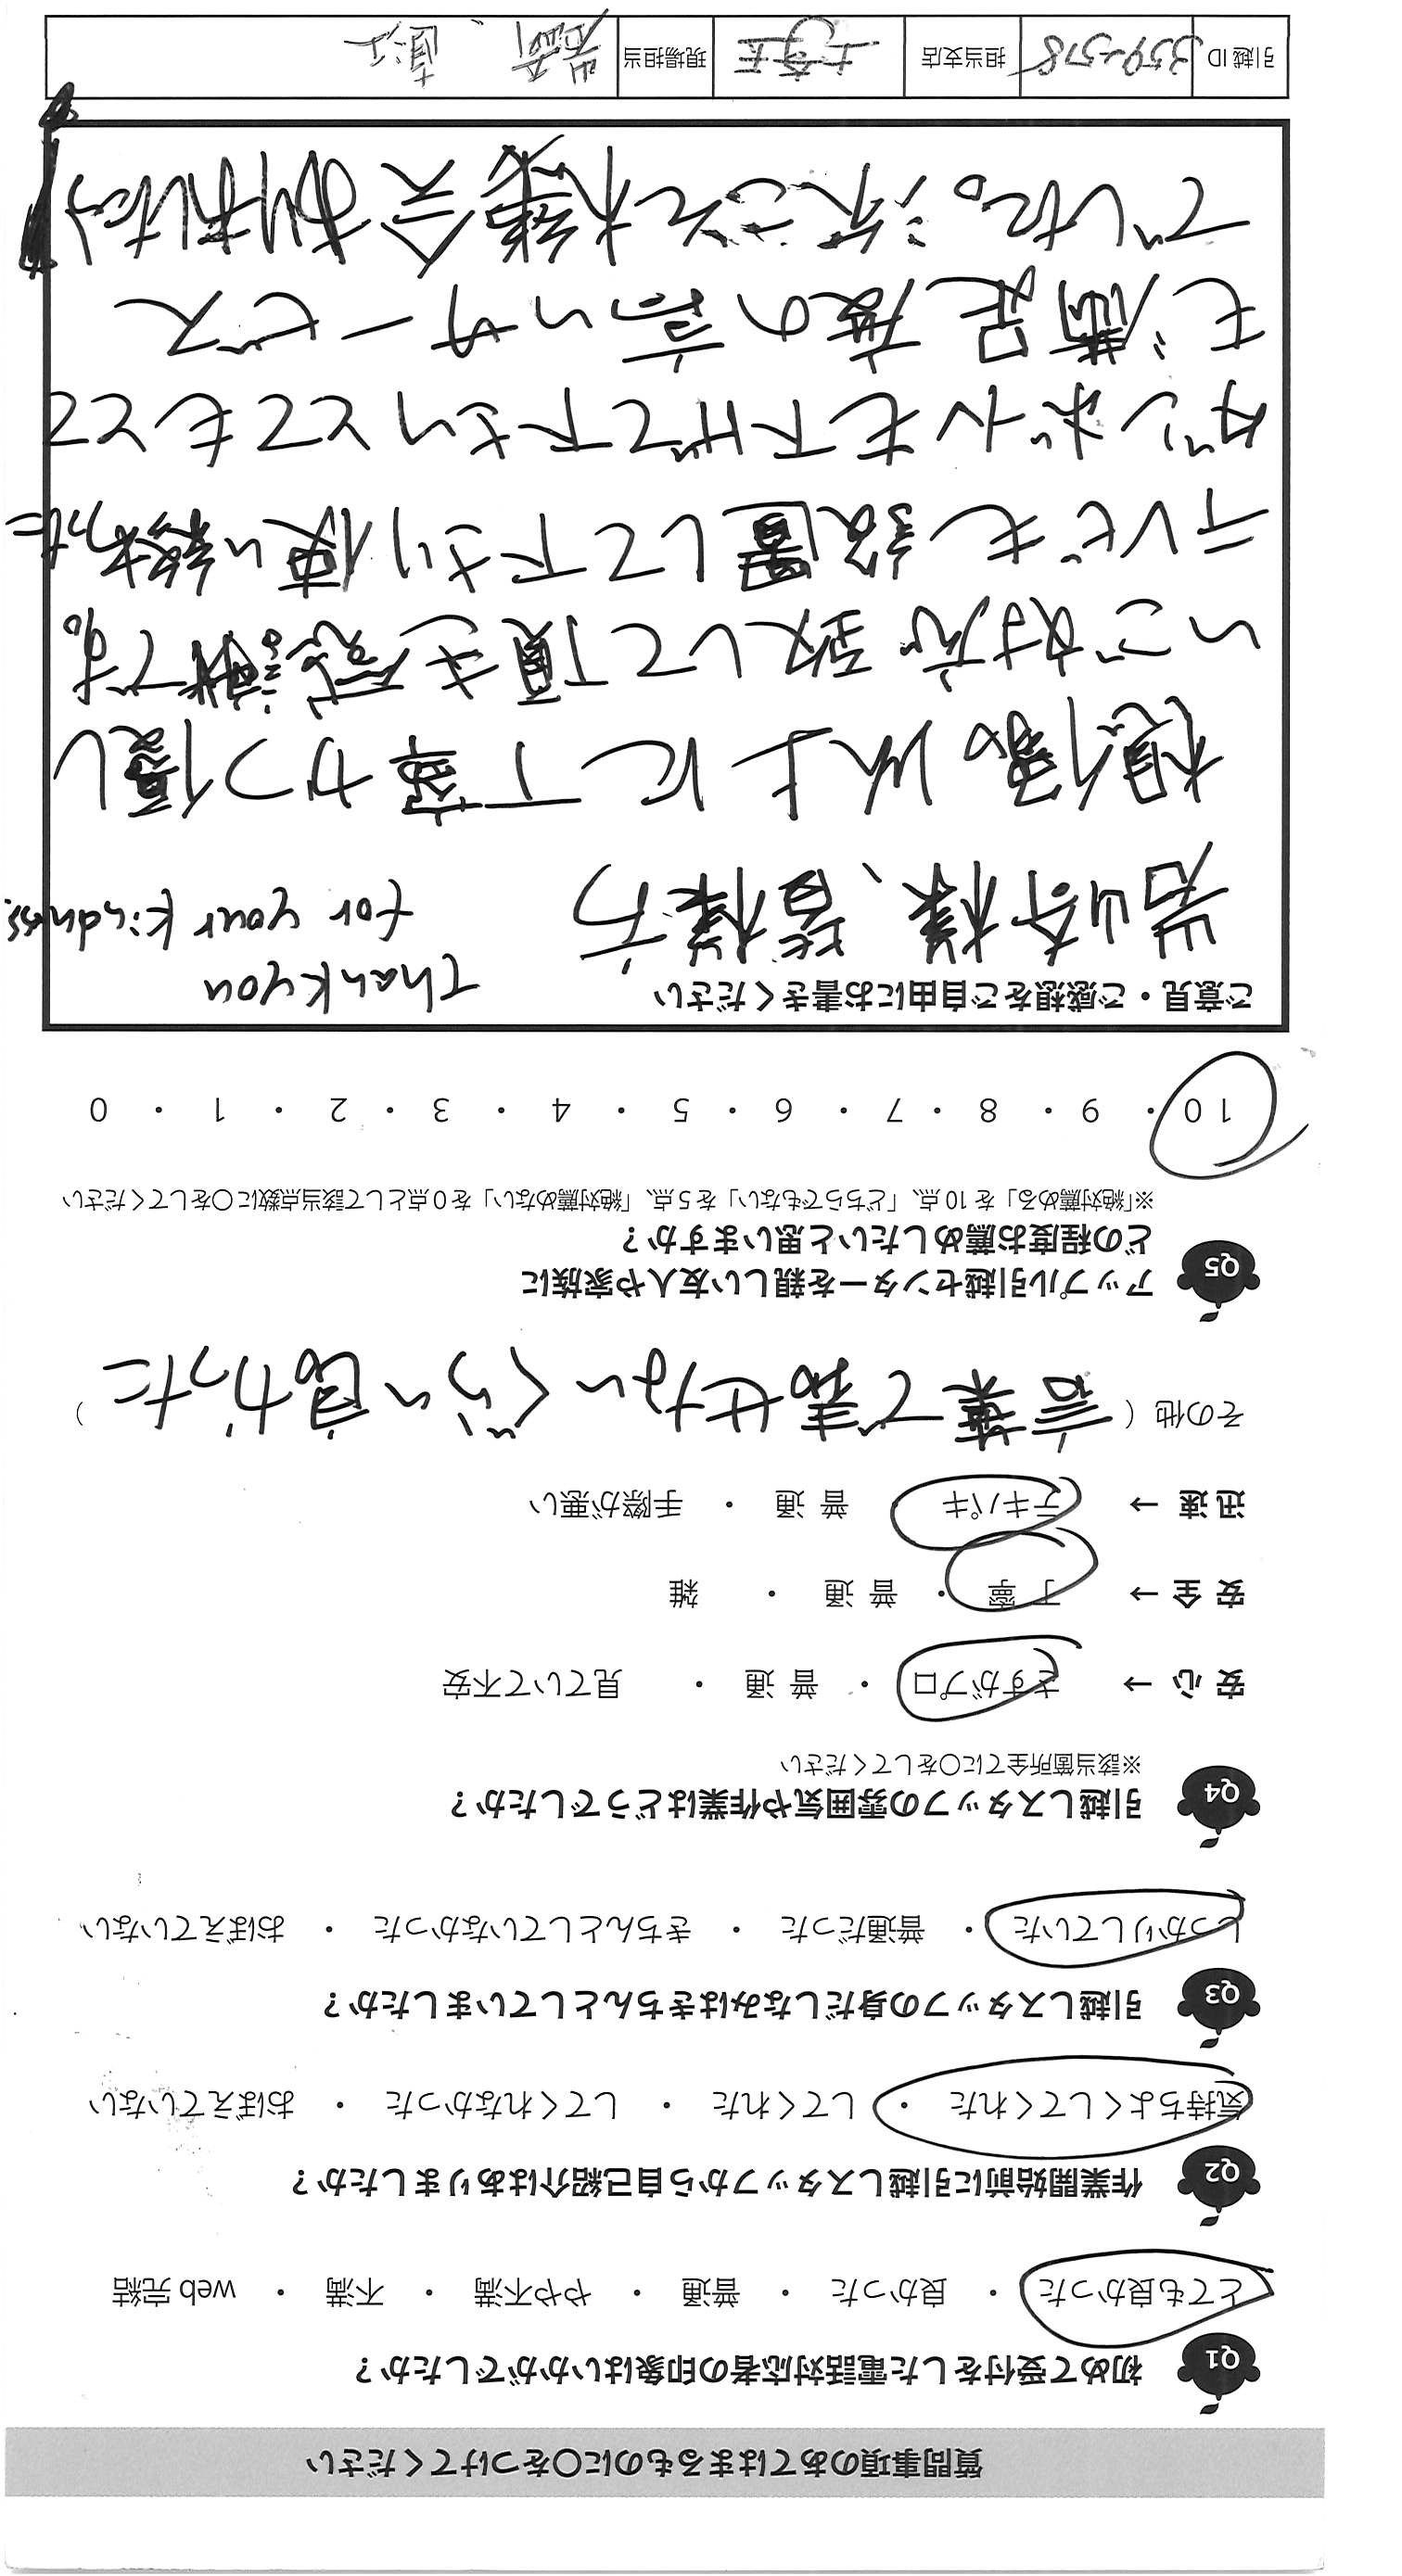 質問事項のあてはまるものに〇をつけてください
Q1 初めて受付をした電話対応者の印象はいかがでしたか？
とても良かった ・ 良かった ・ 普通 ・ やや不満 ・ 不満 ・ web 完結
Q2 作業開始前に引越しスタッフから自己紹介はありましたか？
気持ちよくしてくれた ・ してくれた ・ してくれなかった ・ おぼえていない
Q3 引越しスタッフの身だしなみはきちんとしていましたか？
しっかりしていた ・ 普通だった ・ きちんとしていなかった ・ おぼえていない
Q4 引越しスタッフの雰囲気や作業はどうでしたか？
※該当箇所全てに〇をしてください
安 心 → さすがプロ ・ 普 通 ・ 見ていて不安
安 全 → 丁 寧 ・ 普 通 ・ 雑
迅 速 → テキパキ 普 通 ・ 手際が悪い
その他（ 言葉で表せないぐらい良かった ）
Q5 アップル引越センターを親しい友人や家族に
どの程度お薦めしたいと思いますか？
※「絶対薦める」を 10 点、「どちらでもない」を 5 点、「絶対薦めない」を 0 点として該当点数に〇をしてください
10 ・ 9 ・ 8 ・ 7 ・ 6 ・ 5 ・ 4 ・ 3 ・ 2 ・ 1 ・ 0
ご意見・ご感想をご自由にお書きください
Thank you
for your kindness.
岩崎様、皆様方
想像以上に丁寧かつ優し
いご対応致して頂き感謝です。
テレビも設置して下さり使い終わった
ダンボールも下げて下さりとてもとて
も満足度の高いサービス
でした。次こそわ機会ありましたら
引越 ID 3592578 担当支店 現場担当 岩崎、直江